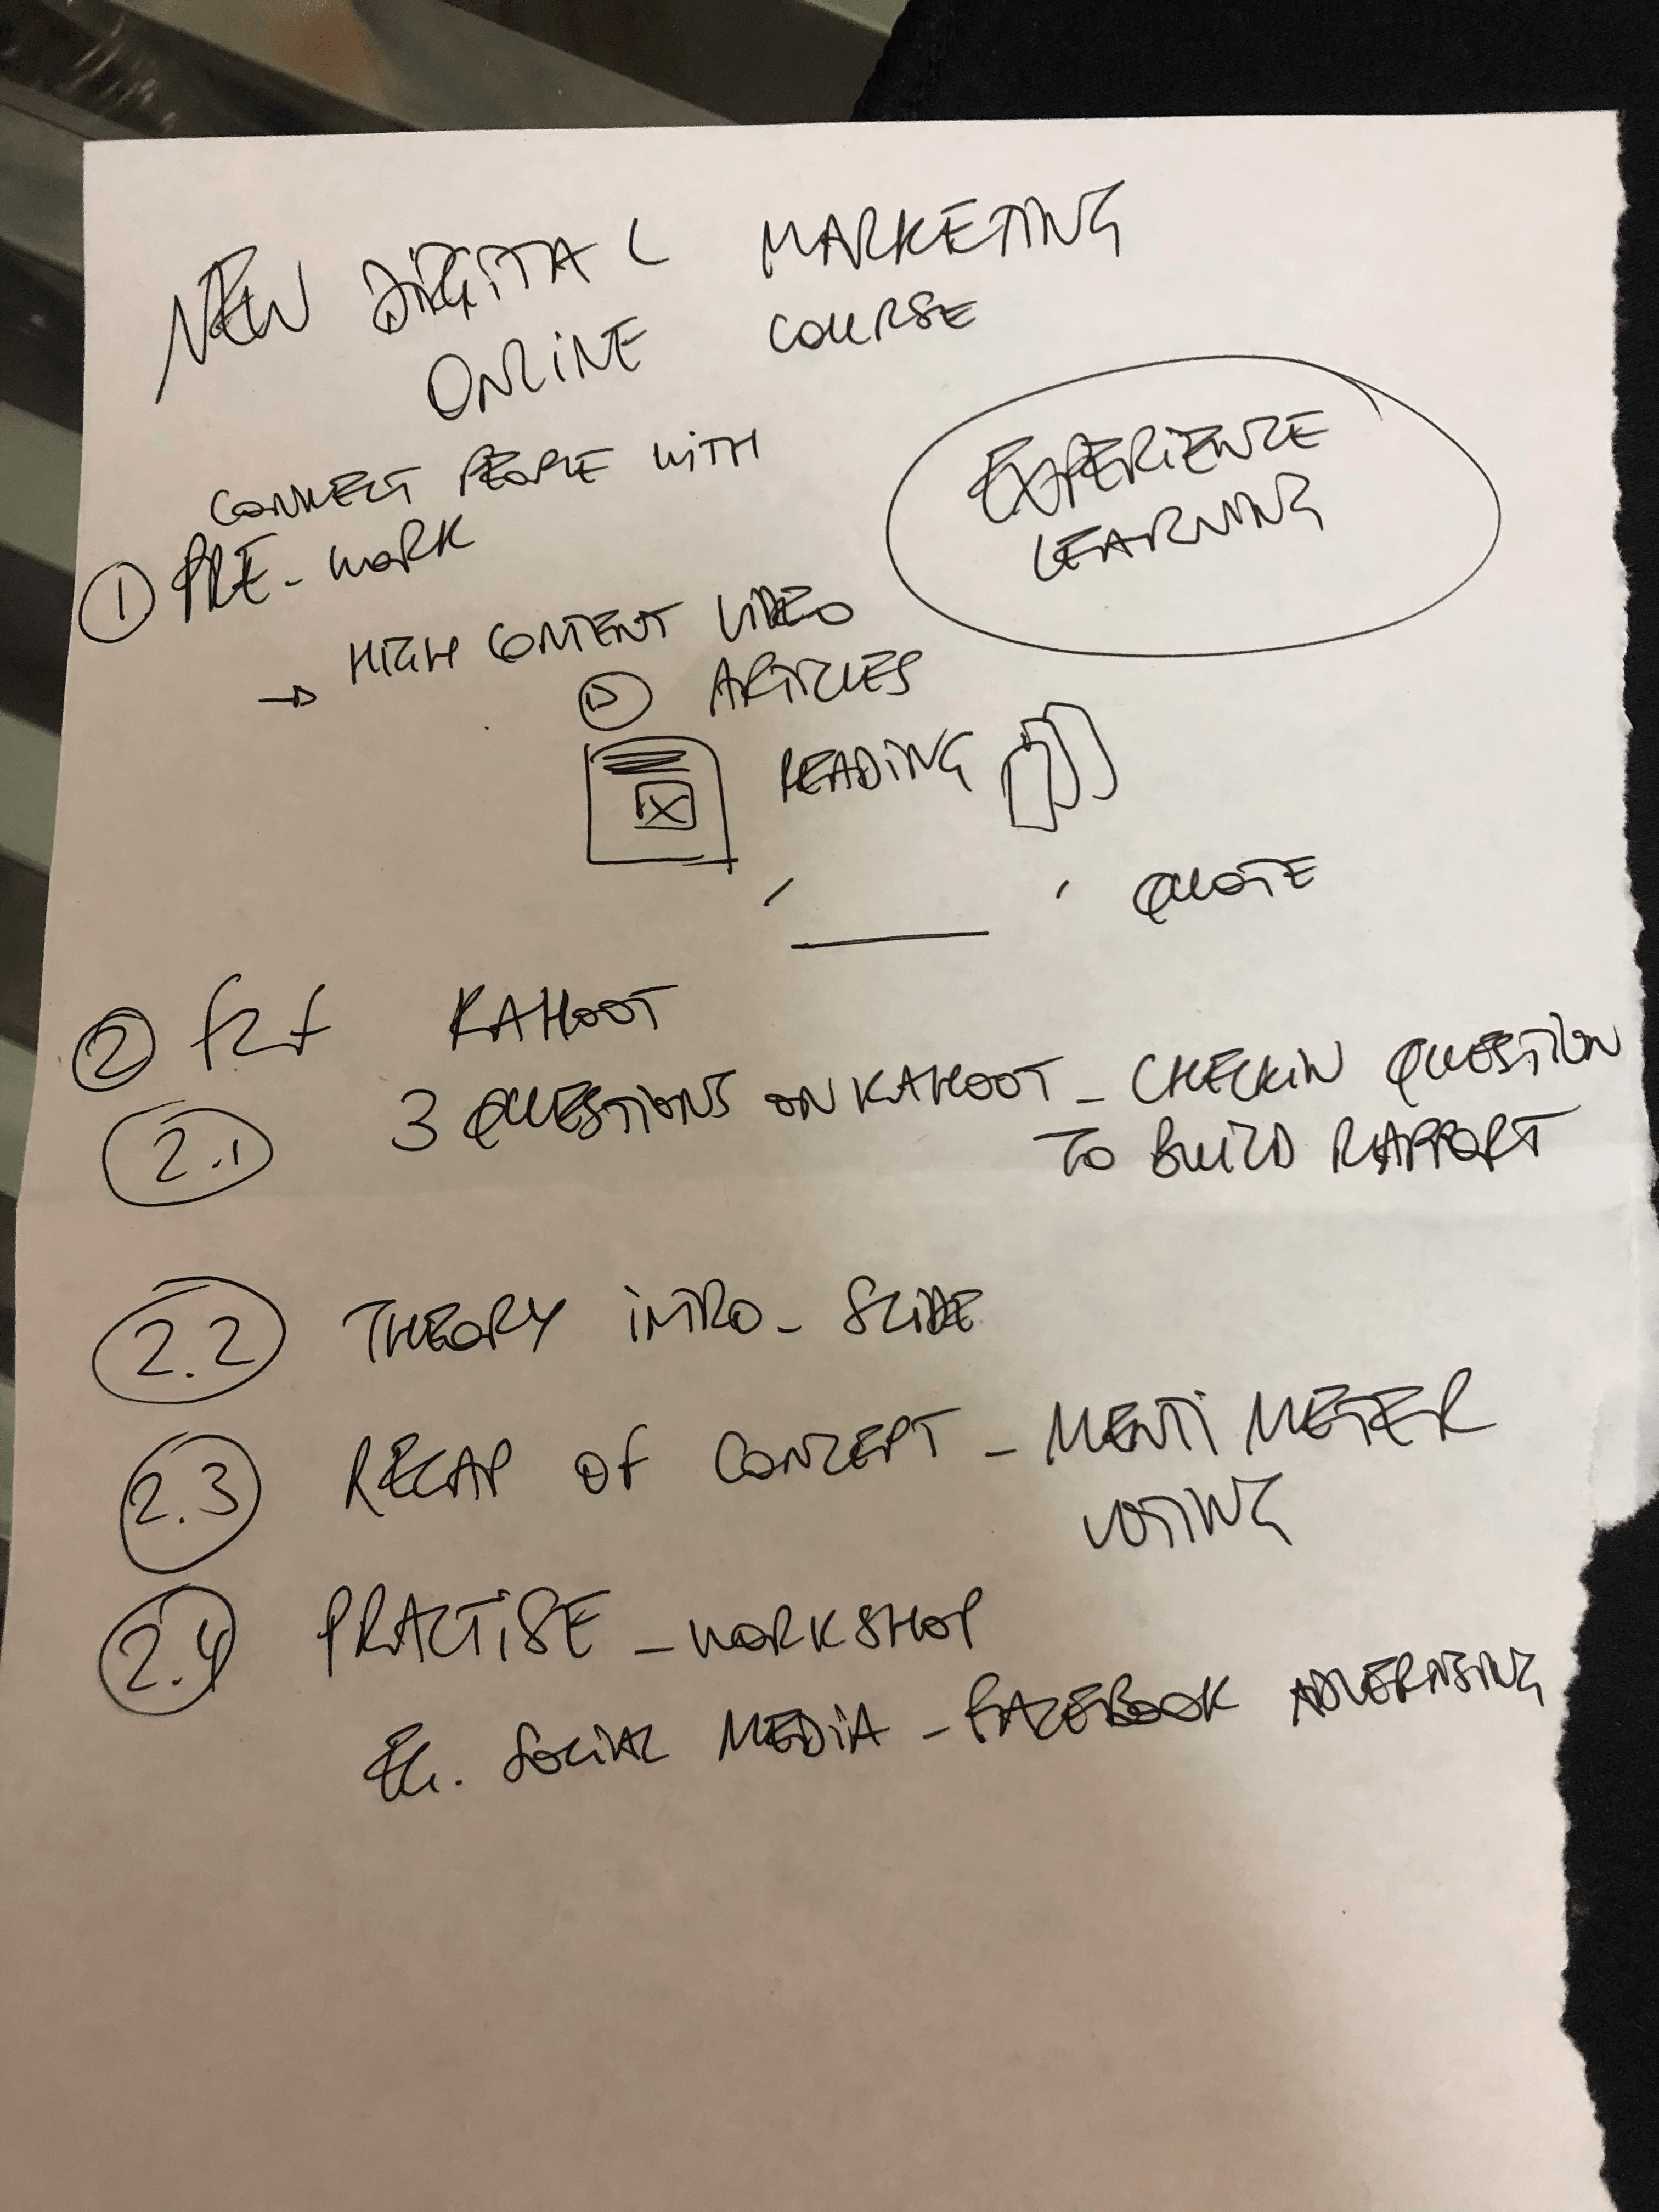 NEW DIGITAL MARKETING
ONLINE COURSE
EXPERIENCE
LEARNING
CONNECT PEOPLE WITH
① PRE-WORK
→ HIGH CONTENT VIDEO
ARTICLES
READING
' ____ ' QUOTE
② f2f KAHOOT
2.1 3 QUESTIONS ON KAHOOT - CHECKIN QUESTION
TO BUILD RAPPORT
2.2 THEORY INTRO - SLIDE
2.3 RECAP OF CONCEPT - MENTI METER
VOTING
2.4 PRACTISE - WORKSHOP
EG. SOCIAL MEDIA - FACEBOOK ADVERTISING